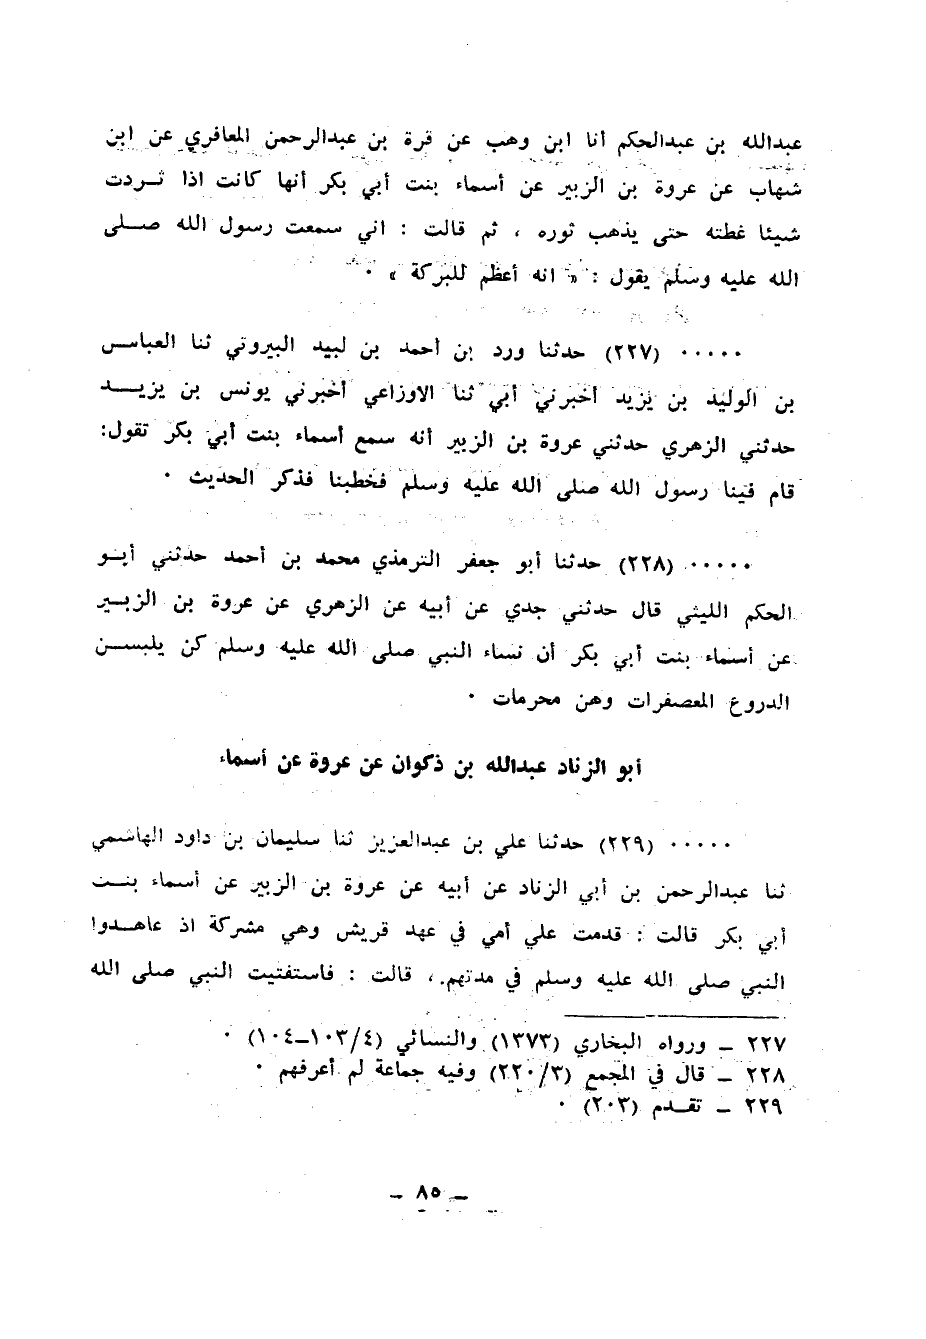 عبدالله بن عبدالحكم أنا ابن وهب عن قرة بن عبدالرحمن المعافري عن ابن
شهاب عن عروة بن الزبير عن أسماء بنت أبي بكر أنها كانت اذا ثردت
شيئا غطته حتى يذهب ثوره ، ثم قالت : اني سمعت رسول الله صلى
الله عليه وسلم يقول : « انه أعظم للبركة » ٠
٠٠٠٠٠ (٢٢٧) حدثنا ورد بن أحمد بن لبيد البيروتي ثنا العباس
بن الوليد بن يزيد أخبرني أبي ثنا الاوزاعي أخبرني يونس بن يزيد
حدثني الزهري حدثني عروة بن الزبير أنه سمع أسماء بنت أبي بكر تقول:
قام فينا رسول الله صلى الله عليه وسلم فخطبنا فذكر الحديث ٠
٠٠٠٠٠ (٢٢٨) حدثنا أبو جعفر الترمذي محمد بن أحمد حدثني أبو
الحكم الليثي قال حدثني جدي عن أبيه عن الزهري عن عروة بن الزبير
عن أسماء بنت أبي بكر أن نساء النبي صلى الله عليه وسلم كن يلبسن
الدروع المعصفرات وهن محرمات ٠
أبو الزناد عبدالله بن ذكوان عن عروة عن أسماء
٠٠٠٠٠ (٢٢٩) حدثنا علي بن عبدالعزيز ثنا سليمان بن داود الهاشمي
ثنا عبدالرحمن بن أبي الزناد عن أبيه عن عروة بن الزبير عن أسماء بنت
أبي بكر قالت : قدمت علي أمي في عهد قريش وهي مشركة اذ عاهدوا
النبي صلى الله عليه وسلم في مدتهم ، قالت : فاستفتيت النبي صلى الله
٢٢٧ – ورواه البخاري (١٣٧٣) والنسائي (١٠٣/٤–١٠٤) ٠
٢٢٨ – قال في المجمع (٢٢٠/٣) وفيه جماعة لم أعرفهم ٠
٢٢٩ – تقدم (٢٠٣) ٠
– ٨٥ –